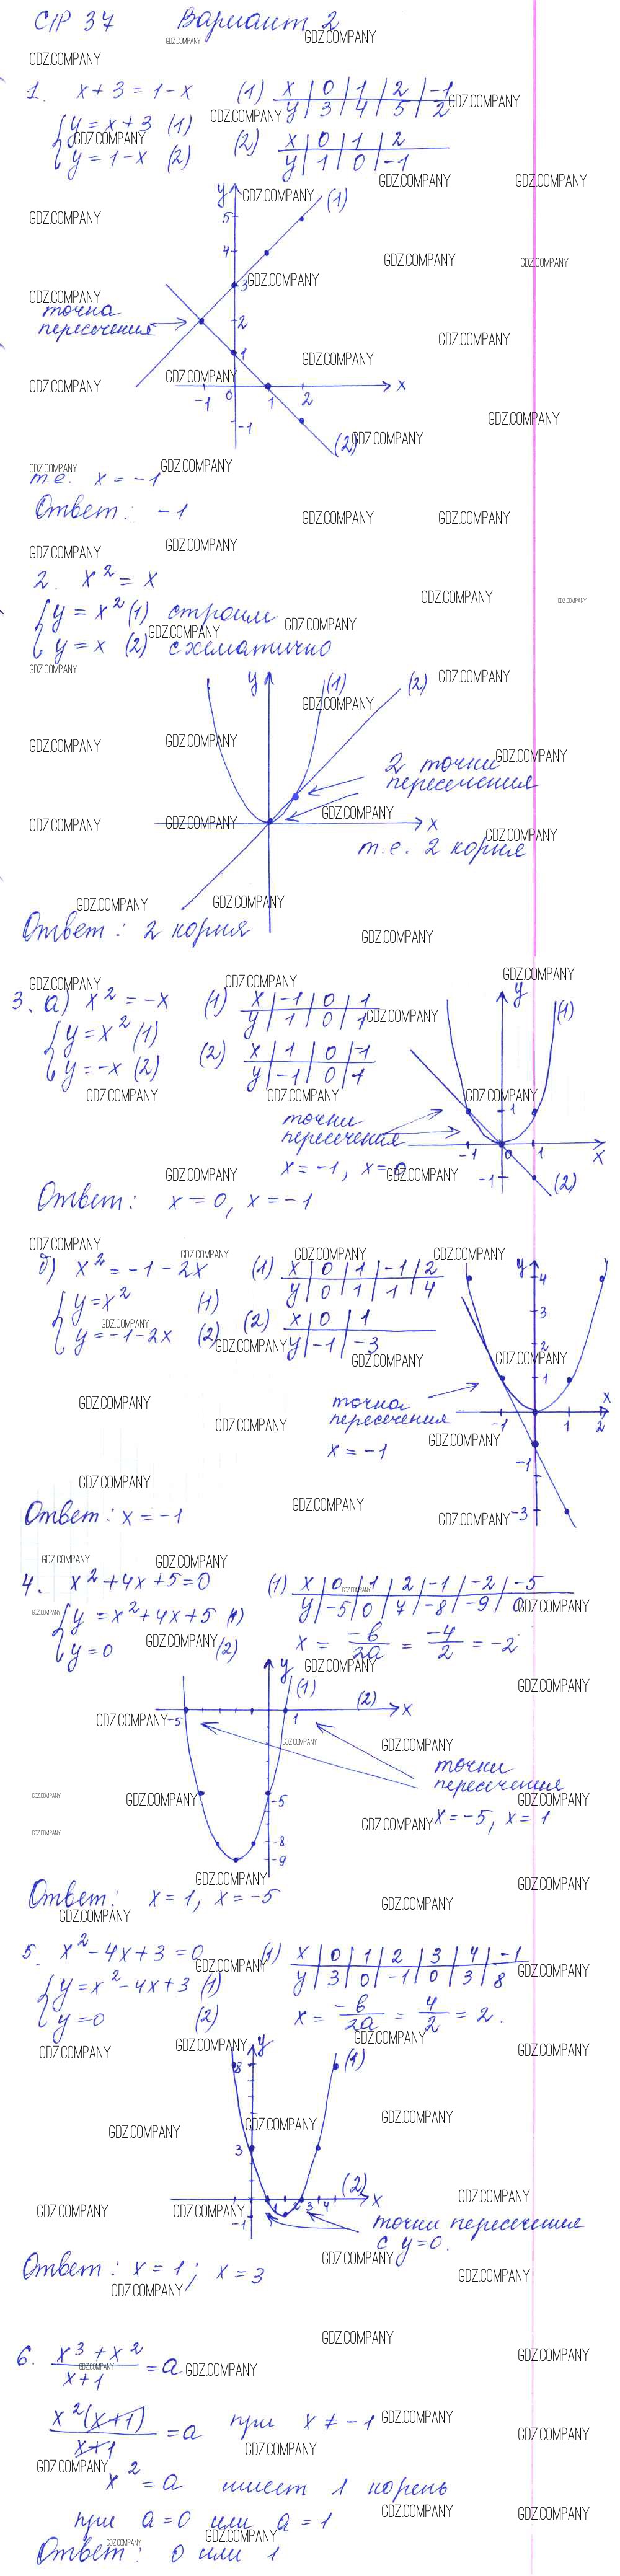 С/Р 37 Вариант 2
1. x + 3 = 1 - x
{ y = x + 3 (1)
{ y = 1 - x (2)
(1) x | 0 | 1 | 2 | -1
y | 3 | 4 | 5 | 2
(2) x | 0 | 1 | 2
y | 1 | 0 | -1
y
5
4
3
2
1
-1 0 1 2 x
-1
(1)
(2)
точка
пересечения
т.е. x = -1
Ответ: -1
2. x² = x
{ y = x² (1) строим
{ y = x (2) схематично
y (1) (2)
2 точки
пересечения
x
т.е. 2 корня
Ответ: 2 корня
3. а) x² = -x
{ y = x² (1)
{ y = -x (2)
(1) x | -1 | 0 | 1
y | 1 | 0 | 1
(2) x | 1 | 0 | -1
y | -1 | 0 | 1
y (1)
1
-1 0 1 x
-1 (2)
точки
пересечения
x = -1, x = 0
Ответ: x = 0, x = -1
б) x² = -1 - 2x
{ y = x² (1)
{ y = -1 - 2x (2)
(1) x | 0 | 1 | -1 | 2
y | 0 | 1 | 1 | 4
(2) x | 0 | 1
y | -1 | -3
y
4
3
2
1
-1 1 2 x
-1
-3
точка
пересечения
x = -1
Ответ: x = -1
4. x² + 4x + 5 = 0
{ y = x² + 4x + 5 (1)
{ y = 0 (2)
(1) x | 0 | 1 | 2 | -1 | -2 | -5
y | -5 | 0 | 7 | -8 | -9 | 0
x = -b/2a = -4/2 = -2
y (1) (2)
-5 1 x
-5
-8
-9
точки
пересечения
x = -5, x = 1
Ответ: x = 1, x = -5
5. x² - 4x + 3 = 0
{ y = x² - 4x + 3 (1)
{ y = 0 (2)
(1) x | 0 | 1 | 2 | 3 | 4 | -1
y | 3 | 0 | -1 | 0 | 3 | 8
x = -b/2a = 4/2 = 2.
y
8 (1)
3
(2)
1 2 3 4 x
-1
точки пересечения
с y = 0.
Ответ: x = 1; x = 3
6. (x³ + x²)/(x + 1) = a
x²(x+1)/(x+1) = a при x ≠ -1
x² = a имеет 1 корень
при a = 0 или a = 1
Ответ: 0 или 1
GDZ.COMPANY